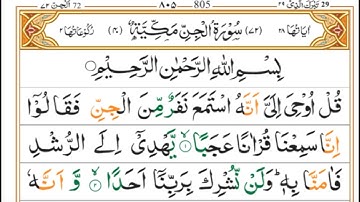 ٧٢ الجن 72 ٨٠٥ 805 تبٰرك الذی ٢٩ 29
اٰیَاتُهَا ٢٨ (٧٢) سُوْرَةُ الْجِنِّ مَكِّیَّةٌ (٤٠) رُكُوْعَاتُهَا ٢
بِسْمِ اللّٰهِ الرَّحْمٰنِ الرَّحِیْمِ
قُلْ اُوْحِیَ اِلَیَّ اَنَّهُ اسْتَمَعَ نَفَرٌ مِّنَ الْجِنِّ فَقَالُوْۤا
اِنَّا سَمِعْنَا قُرْاٰنًا عَجَبًا ۙ﴿١﴾ یَّهْدِیْۤ اِلَی الرُّشْدِ
فَاٰمَنَّا بِهٖ ؕ وَلَنْ نُّشْرِكَ بِرَبِّنَاۤ اَحَدًا ۙ﴿٢﴾ وَّ اَنَّهٗ